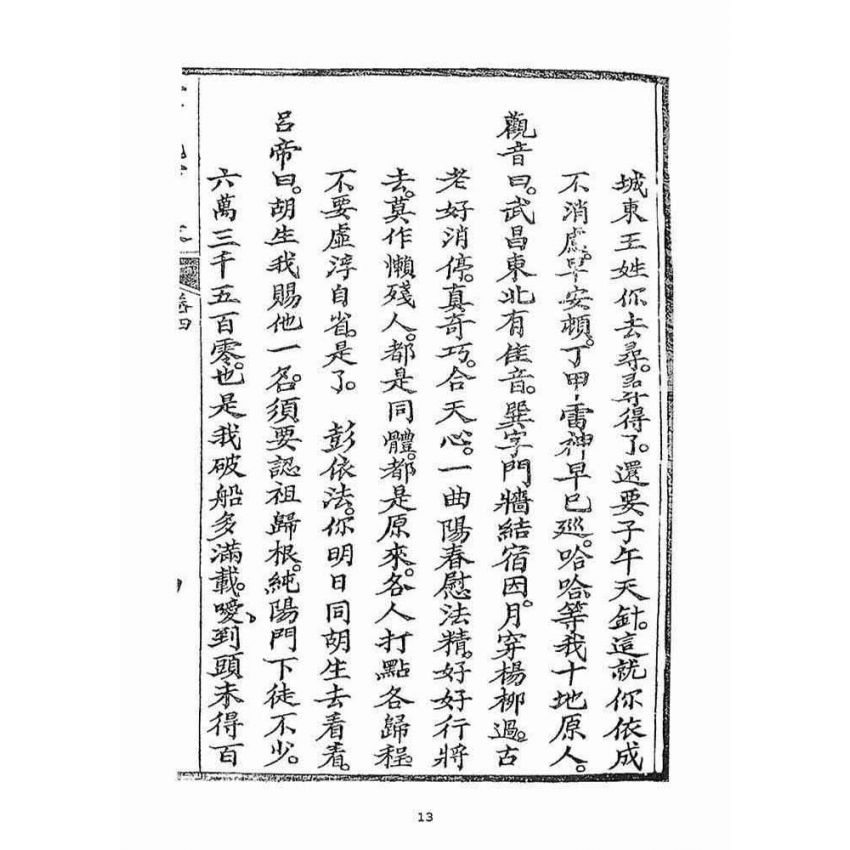 城東王姓你去尋。尋得了。還要子午天針。這就你依成
不消慮。早安頓。丁甲雷神早已巡。哈哈。等我十地原人。
觀音曰。武昌東北有佳音。巽字門牆結宿因。月穿楊柳過。古
老好消停。真奇巧。合天心。一曲陽春慰法精。好好行將
去。莫作懶殘人。都是同體。都是原來。各人打點各歸程。
不要虛浮自省。是了。 彭依法。你明日同胡生去看看。
呂帝曰。胡生我賜他一名。須要認祖歸根。純陽門下徒不少。
六萬三千五百零。也是我破船多滿載。噯、到頭未得百
卷四
13